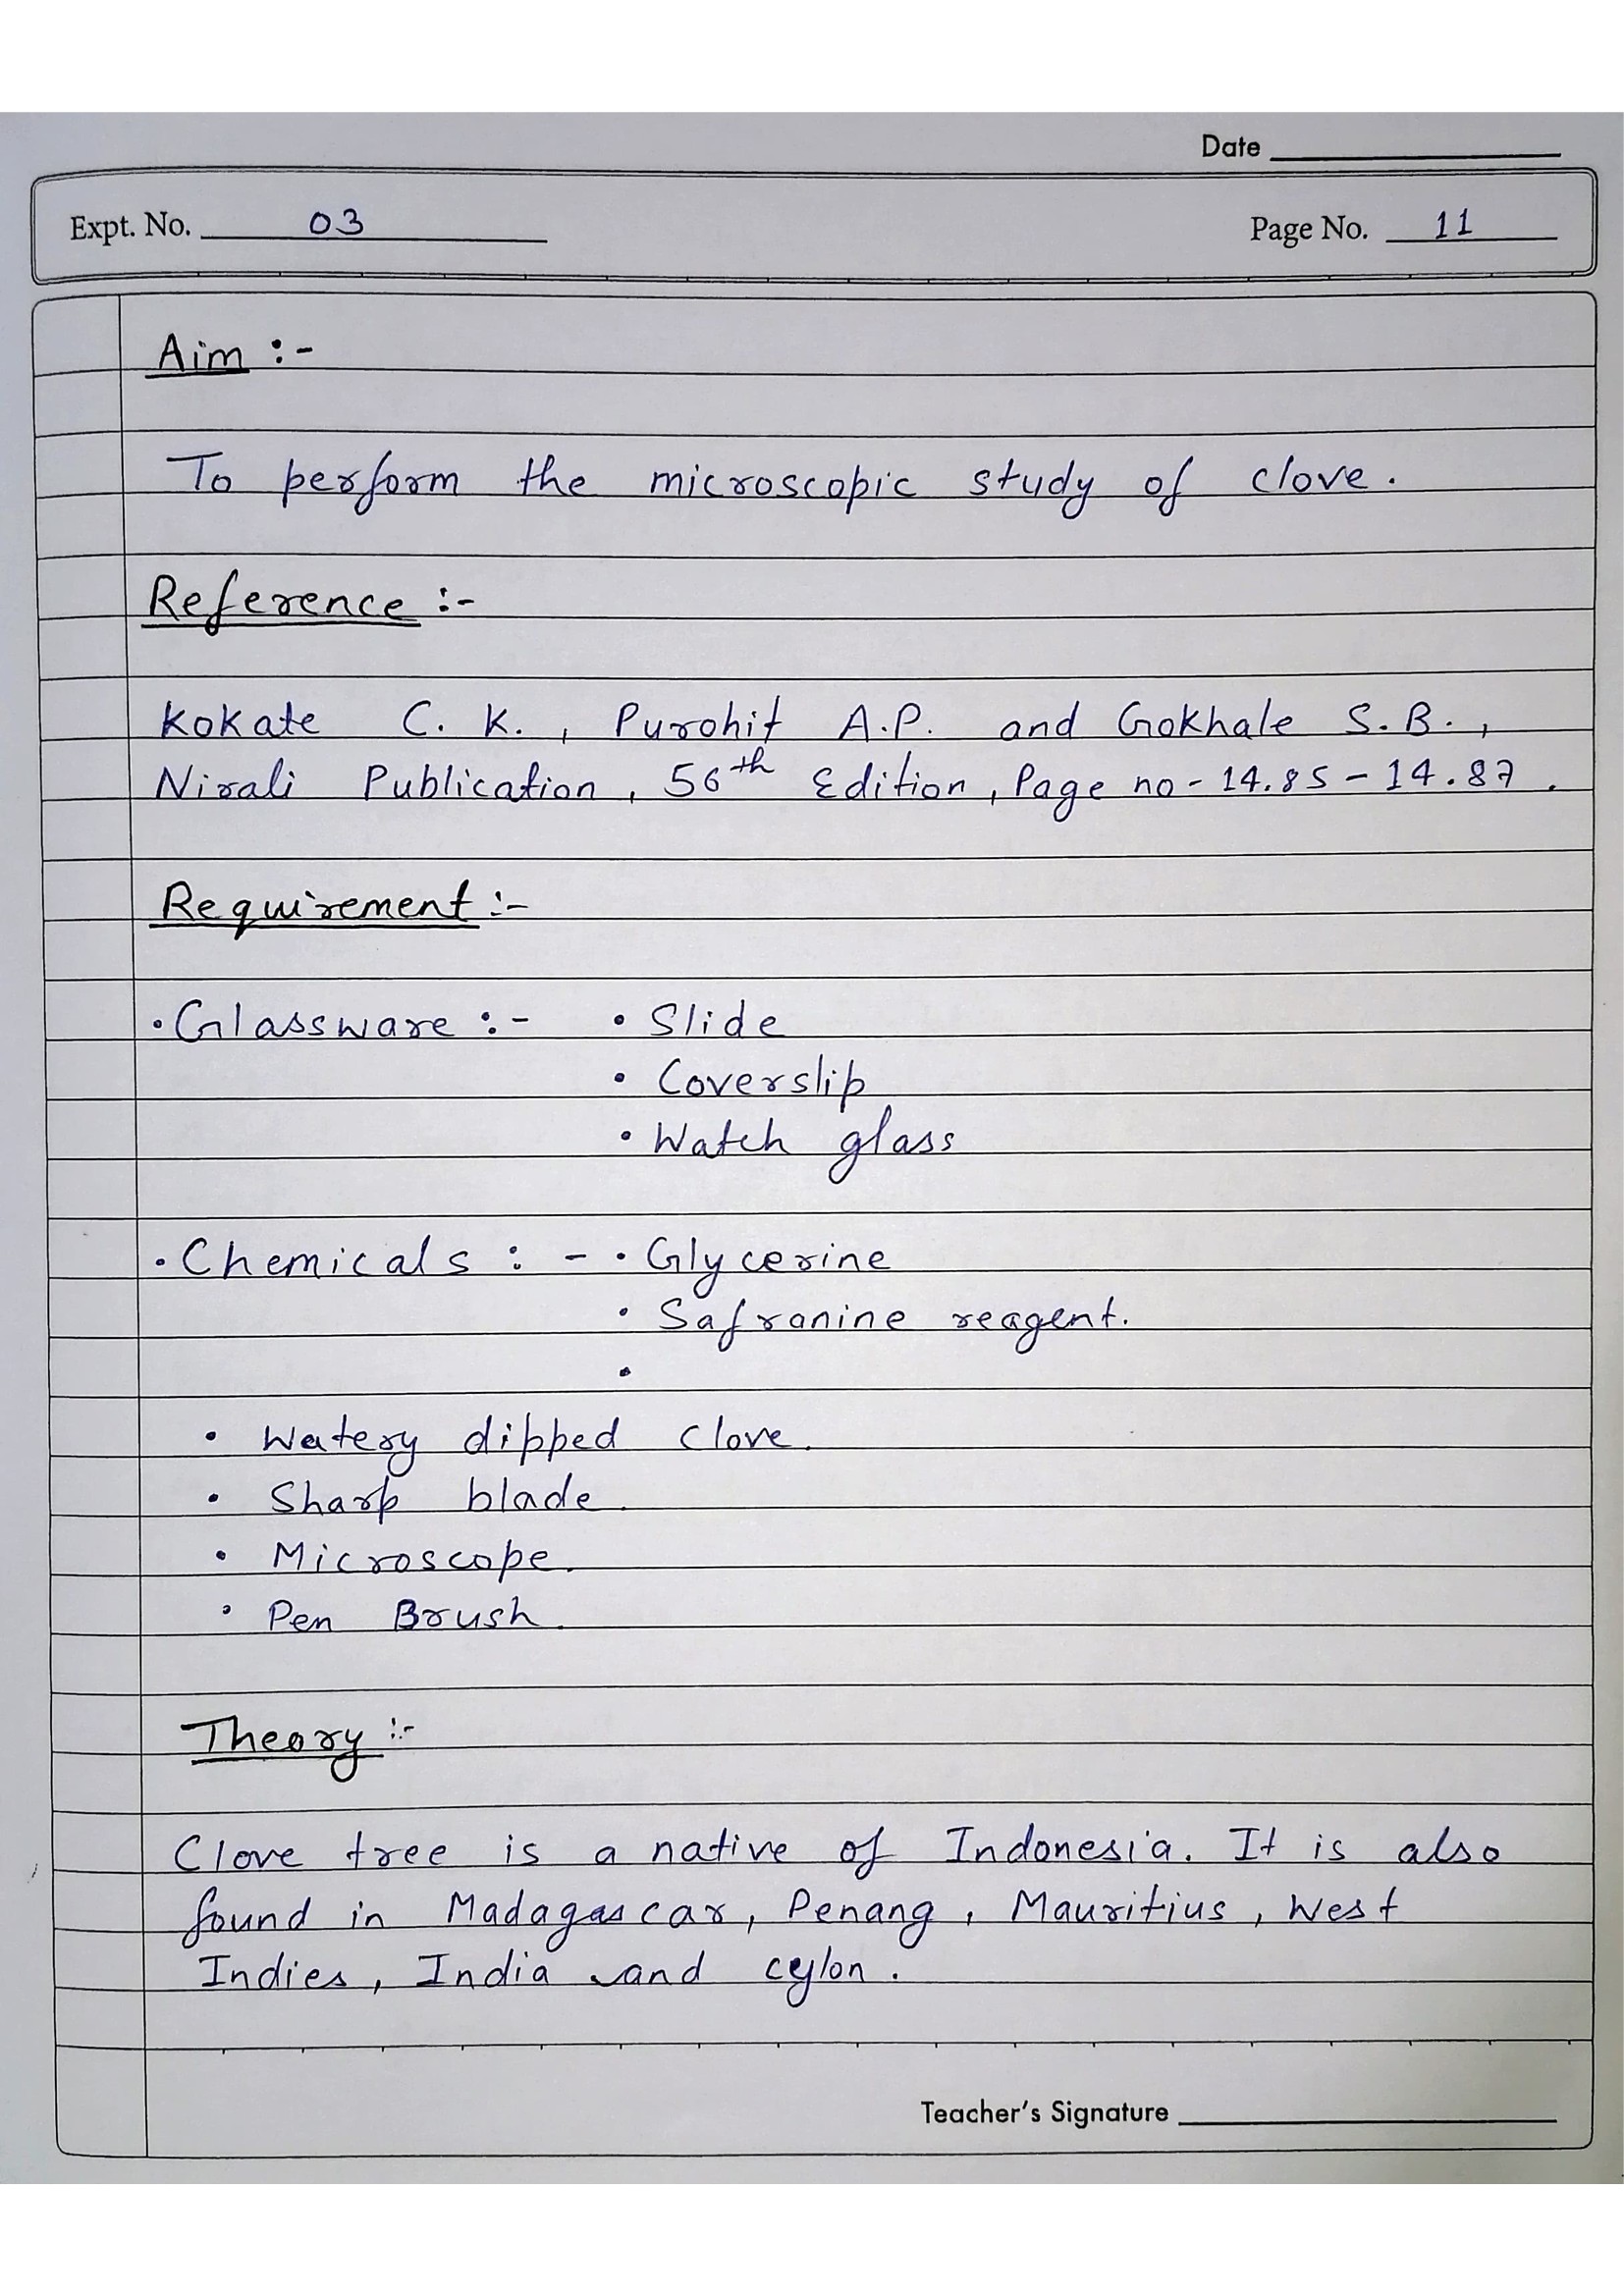 Date
Expt. No. 03 Page No. 11
Aim :-
To perform the microscopic study of clove.
Reference :-
Kokate C. K., Purohit A.P. and Gokhale S.B.,
Nirali Publication, 56th Edition, Page no - 14.85 - 14.87.
Requirement :-
• Glassware :- • Slide
• Coverslip
• Watch glass
• Chemicals : - • Glycerine
• Safranine reagent.
•
• Watery dipped clove.
• Sharp blade.
• Microscope.
• Pen Brush.
Theory :-
Clove tree is a native of Indonesia. It is also
found in Madagascar, Penang, Mauritius, West
Indies, India and cylon.
Teacher's Signature